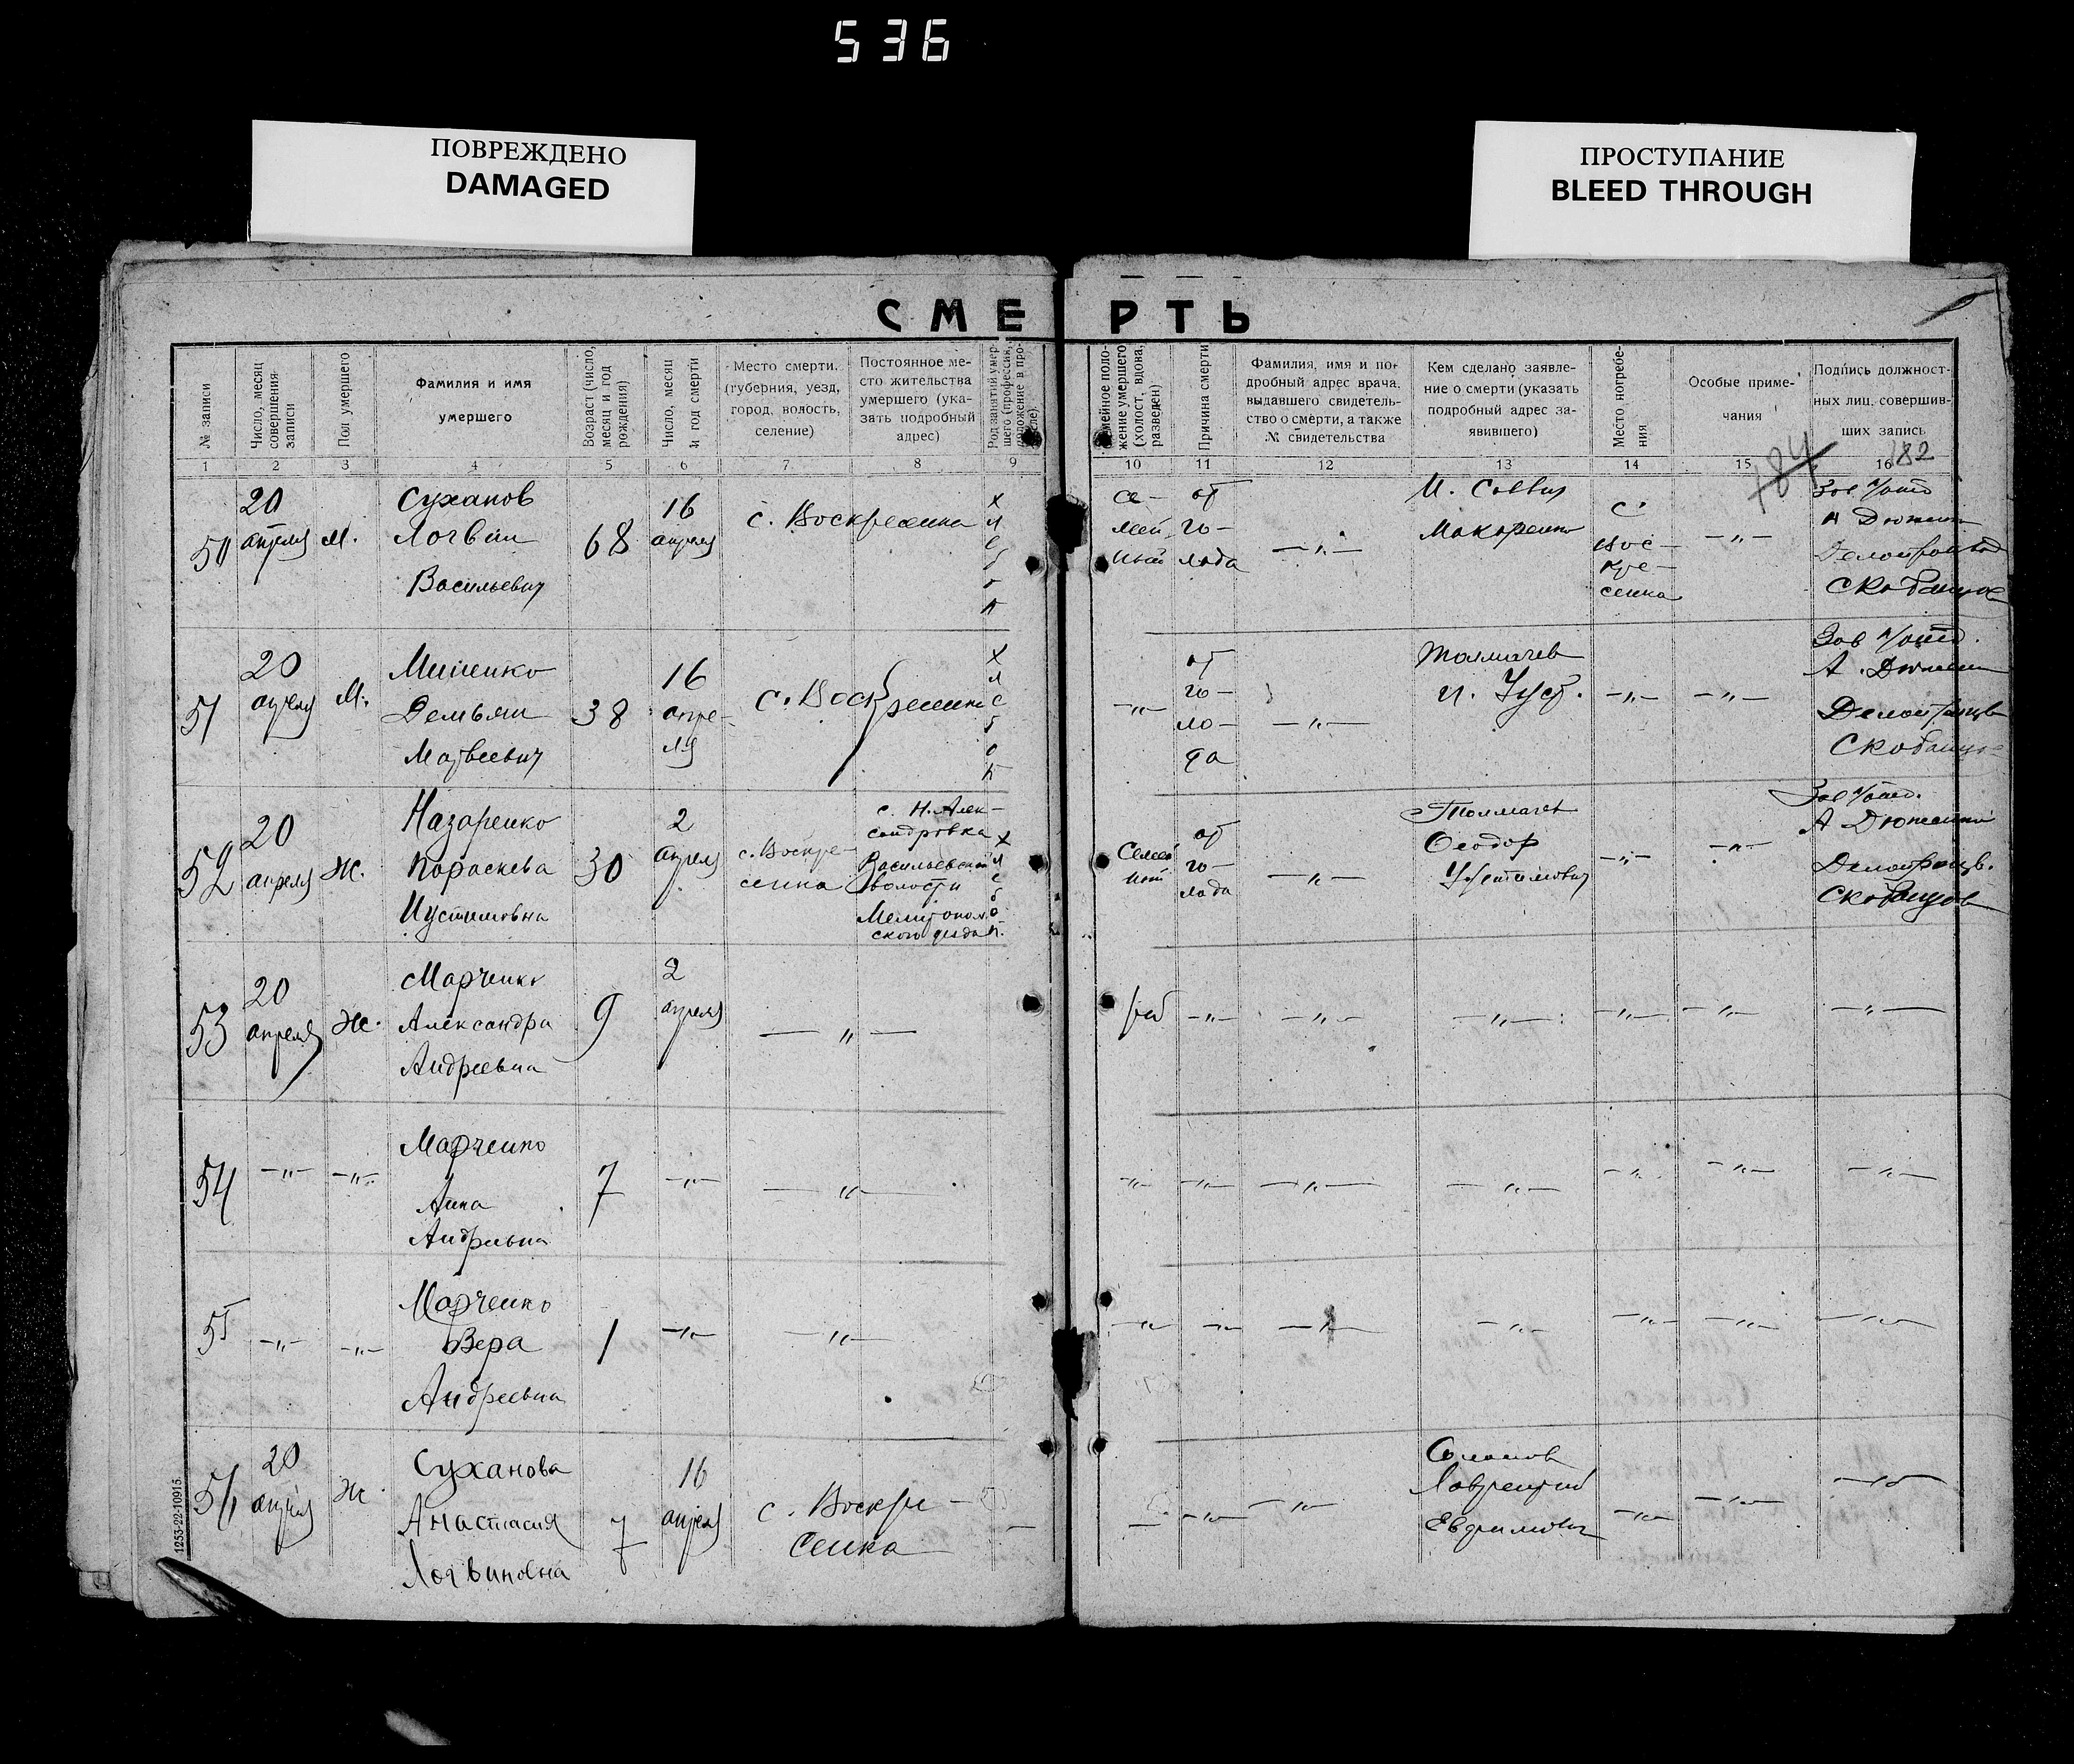 536
ПОВРЕЖДЕНО
DAMAGED
ПРОСТУПАНИЕ
BLEED THROUGH
СМЕРТЬ
№ записи
Число, месяц совершения записи
Пол умершего
Фамилия и имя
умершего
Возраст (число, месяц и год рождения)
Число, месяц и год смерти
Место смерти.
(губерния, уезд,
город, волость,
селение)
Постоянное ме-
сто жительства
умершего (ука-
зать подробный
адрес)
Род занятий умер-
шего (профессия,
положение в про-
Семейное поло-
жение умершего
(холост, вдова,
разведен)
Причина смерти
Фамилия, имя и по-
дробный адрес врача,
выдавшего свидетель-
ство о смерти, а также
№ свидетельства
Кем сделано заявле-
ние о смерти (указать
подробный адрес за-
явившего)
Место погребе-
ния
Особые приме-
чания
Подпись должност-
ных лиц, совершив-
ших запись
1 2 3 4 5 6 7 8 9 10 11 12 13 14 15 16
184
182
50
20
апреля
м.
Суханов
Логвин
Васильевич
68
16
апреля
с. Воскресенка
хлебоп
се-
мей
ный
от
го-
лода
—〃—
Макаренко
с.
Вос-
кре-
сенка
—〃—
Скобанцов
51
20
апреля
м.
Миненко
Демьян
Матвеевич
38
16
апре-
ля
с. Воскресенка
хлебоп
—〃—
от
го-
ло-
да
—〃—
Толмачев
—〃—
—〃—
Скобанцов
52
20
апреля
ж.
Назаренко
Параскева
Иустимовна
30
2
апреля
с. Воскре-
сенка
с. Н. Алек-
сандровка
Васильевской
волости
Мелитополь
ского уезда
хлебоп.
Семей
ной
от
го-
лода
—〃—
Толмачев
Феодор
—〃—
—〃—
Скобанцов
53
20
апреля
ж.
Марченко
Александра
Андреевна
9
2
апреля
—〃—
—〃—
—〃—
—〃—
—〃—
—〃—
—〃—
54
—〃—
—〃—
Марченко
Анна
Андреевна
7
—〃—
—〃—
—〃—
—〃—
—〃—
—〃—
—〃—
—〃—
—〃—
55
—〃—
—〃—
Марченко
Вера
Андреевна
1
—〃—
—〃—
—〃—
—〃—
—〃—
—〃—
—〃—
—〃—
—〃—
56
20
апреля
ж.
Суханова
Анастасия
Логвиновна
7
16
апреля
с. Воскре-
сенка
—
—
—〃—
—〃—
Лаврентий
Евфимович
—〃—
—〃—
—〃—
1253-22-10915.